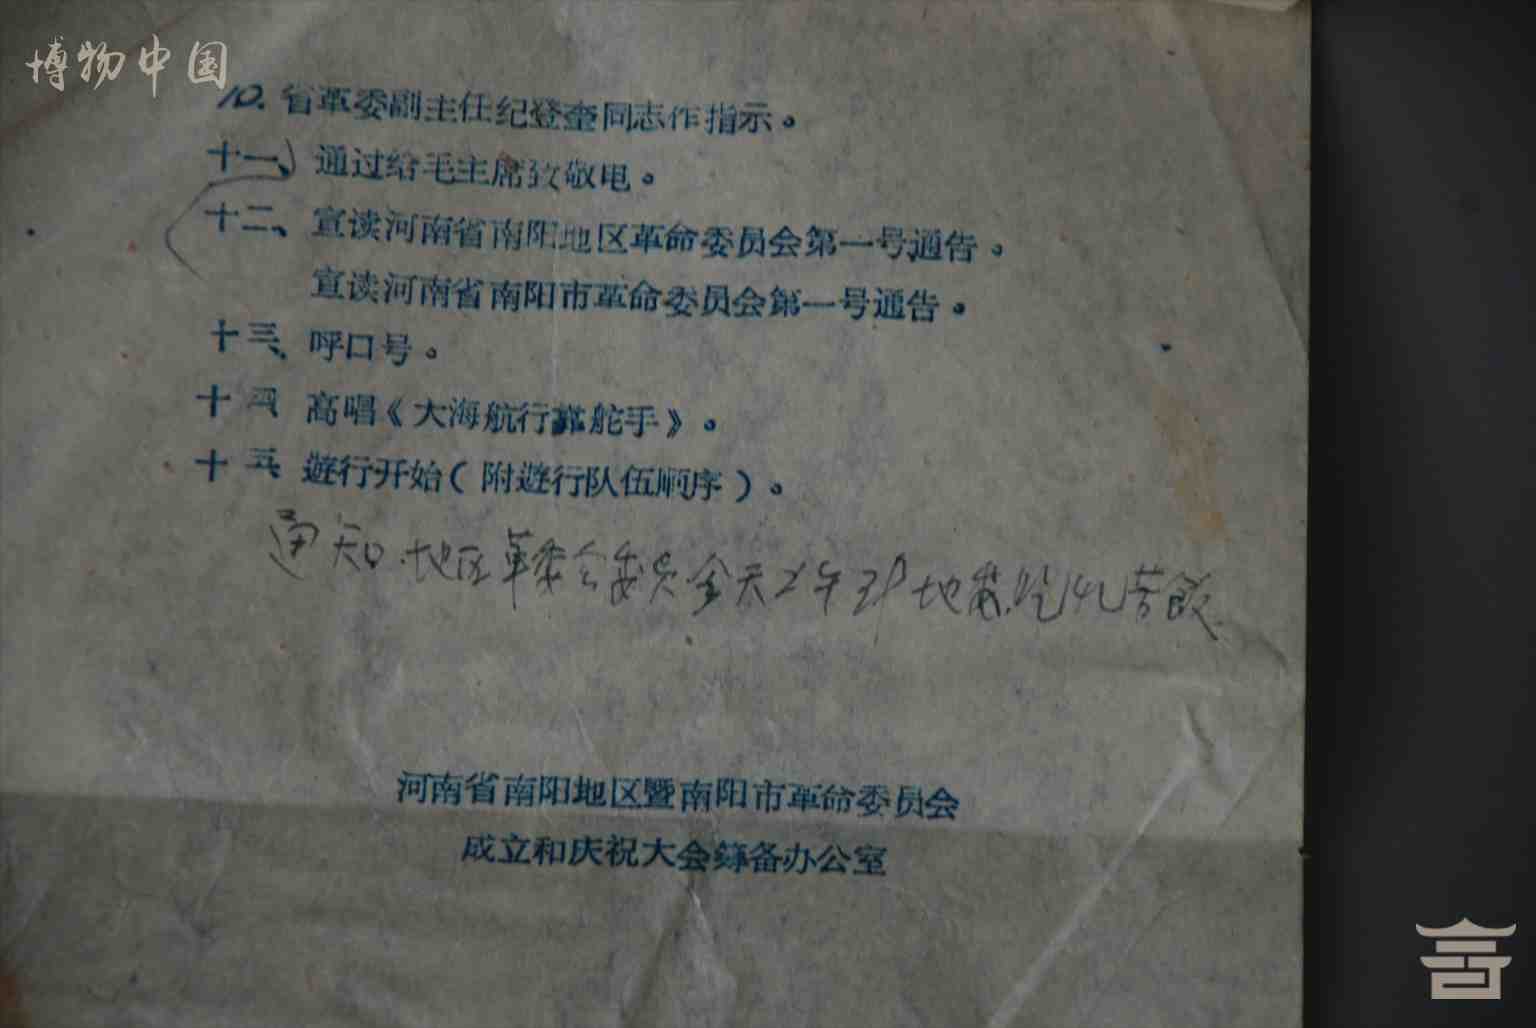 博物中国
10. 省革委副主任纪登奎同志作指示。
十一、通过给毛主席致敬电。
十二、宣读河南省南阳地区革命委员会第一号通告。
宣读河南省南阳市革命委员会第一号通告。
十三、呼口号。
十四 高唱《大海航行靠舵手》。
十五 遊行开始(附遊行队伍顺序)。
通知.地区革委会委员今天2午 到地委.吃忆苦飯.
河南省南阳地区暨南阳市革命委员会
成立和庆祝大会筹备办公室